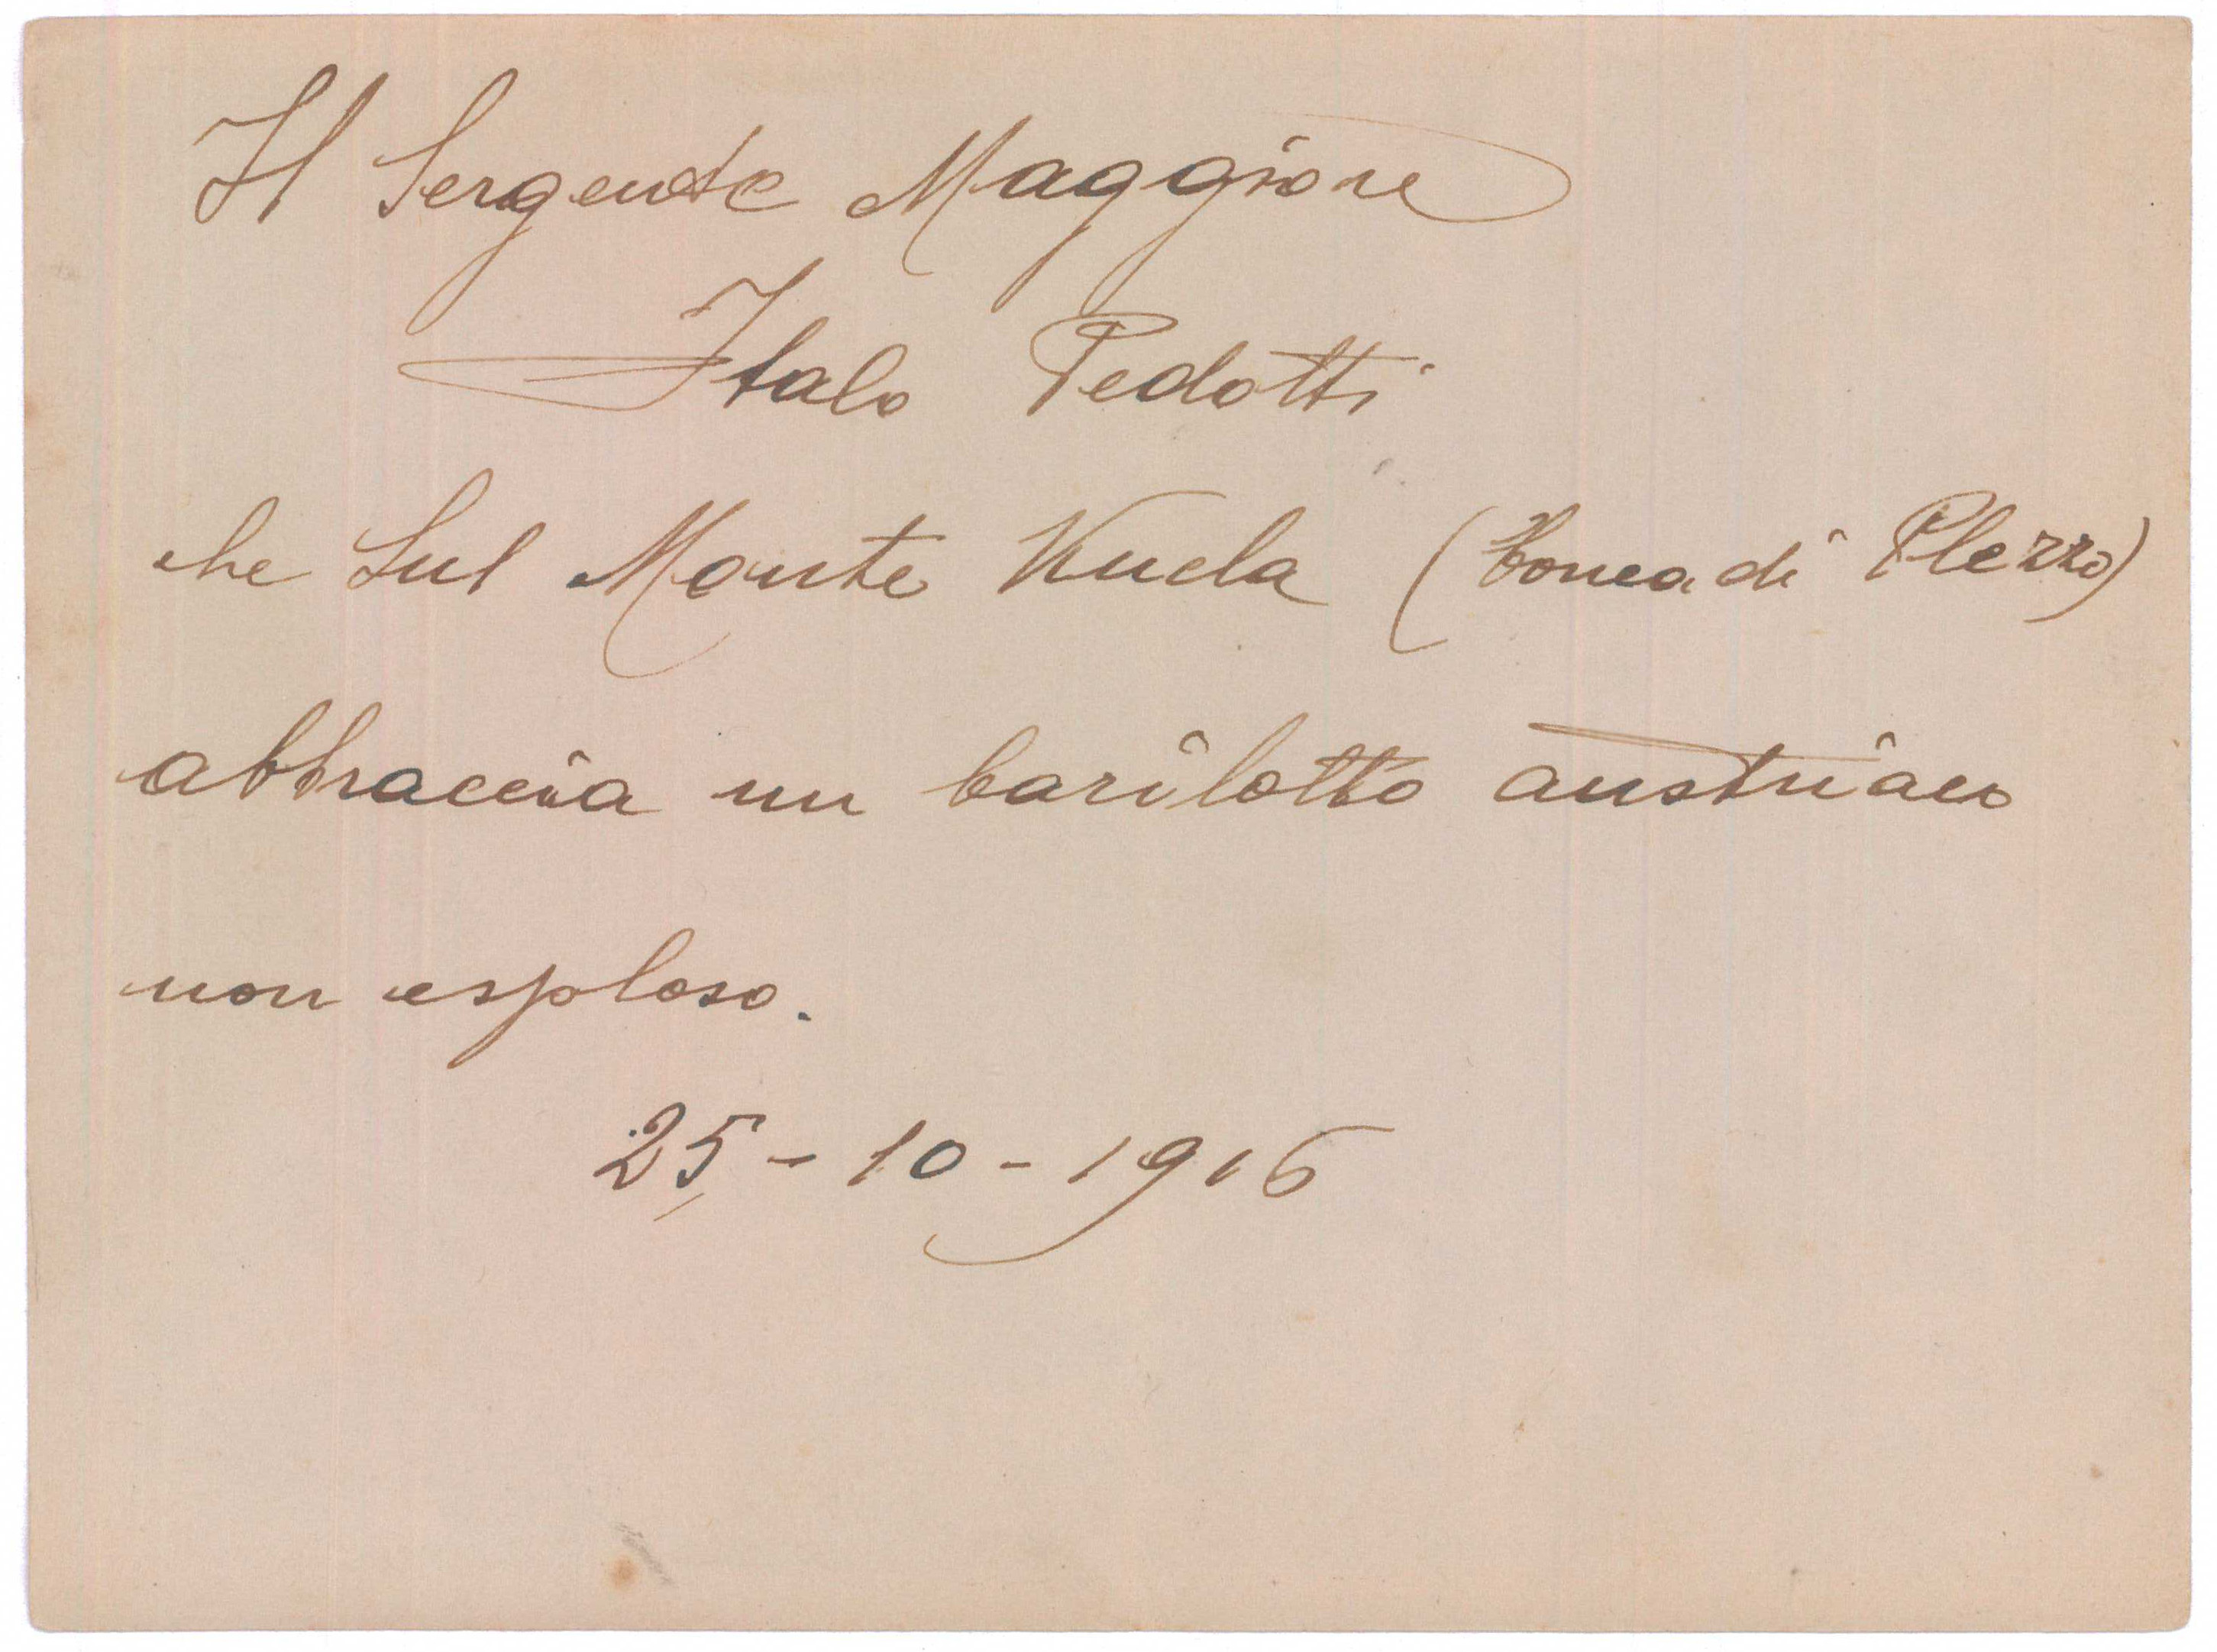 Il Sergente Maggiore
Italo Pedotti
che sul Monte Kucla (Conca di Plezzo)
abbraccia un barilotto austriaco
non esploso.
25-10-1916